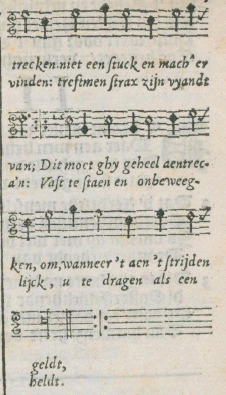 trecken.niet een stuck en mach' er
vinden: treftmen strax zijn vyandt
van; Dit moet ghy geheel aentrec-
a'n: Vast te staen en onbeweeg-
ken, om, wanneer 't aen 't strijden
lijck, u te dragen als een
geldt,
heldt.